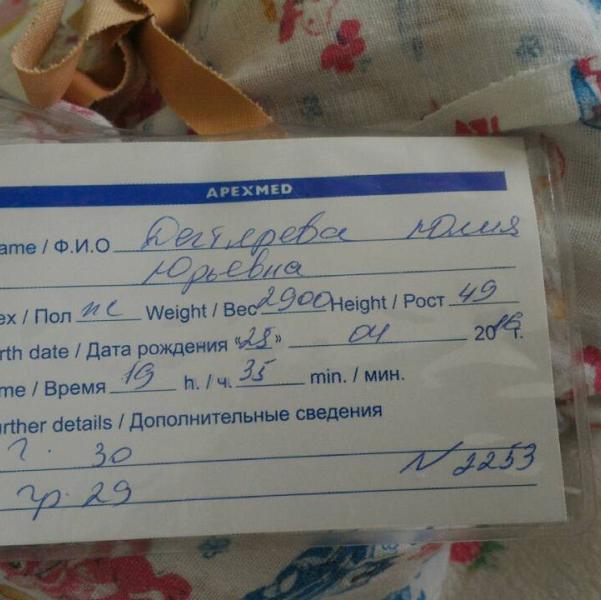 APEXMED
ame / Ф.И.О Дегтярева Юлия
Юрьевна
ex / Пол ж Weight / Вес 2900 Height / Рост 49
rth date / Дата рождения «28» 04 2016г.
me / Время 19 h. / ч. 35 min. / мин.
urther details / Дополнительные сведения
г. 30 N 2253
гр. 29